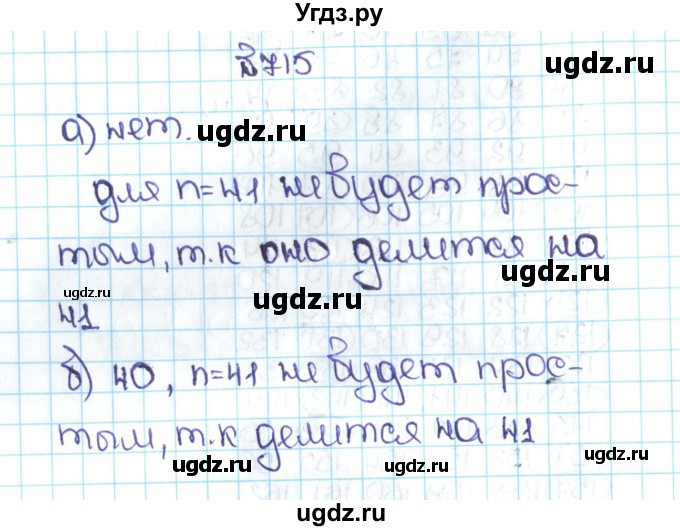 Угдз.ру
№715
ugdz.ru
а) нет. ugdz.ru
для n=41 не будет прос-
тым, т.к оно делится на
ugdz.ru ugdz.ru ugdz.ru
41
б) 40, n=41 не будет прос-
тым, т.к делится на 41
ugdz.ru ugdz.ru ugdz.ru
ugdz.ru